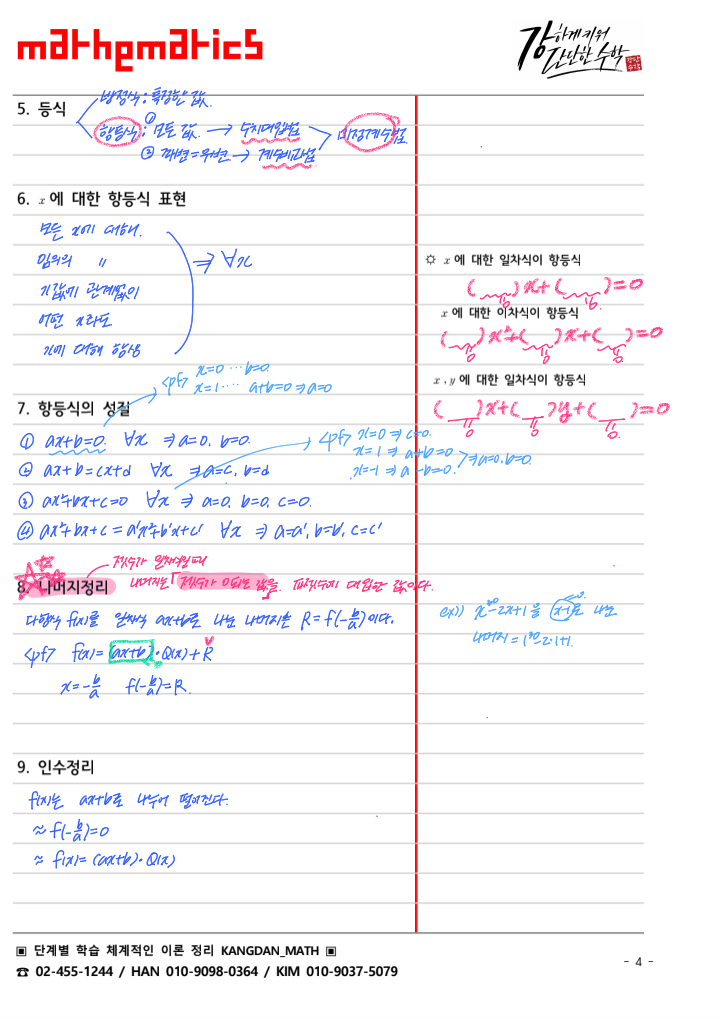 mathematics
강하게 키워
간단한 수학
5. 등식
방정식 : 특정한 값.
항등식 : ① 모든 값. → 수치대입법
② 좌변=우변 → 계수비교법
미정계수법.
6. x에 대한 항등식 표현
모든 x에 대해.
임의의 〃
x값에 관계없이
어떤 x라도
x에 대해 항상
⇒ ∀x
☼ x에 대한 일차식이 항등식
( 0 )x+( 0 )=0
x에 대한 이차식이 항등식
( 0 )x²+( 0 )x+( 0 )=0
x, y에 대한 일차식이 항등식
( 0 )x+( 0 )y+( 0 )=0
7. 항등식의 성질
<pf> x=0 ··· b=0.
x=1 ···· a+b=0 ⇒ a=0
① ax+b=0. ∀x ⇒ a=0, b=0.
<pf> x=0 ⇒ c=0.
x=1 ⇒ a+b=0
x=-1 ⇒ a-b=0.
⇒a=0.b=0.
② ax+b=cx+d ∀x ⇒ a=c, b=d
③ ax²+bx+c=0 ∀x ⇒ a=0, b=0, c=0.
④ ax²+bx+c = a'x²+b'x+c' ∀x ⇒ a=a', b=b', c=c'
8. 나머지정리
제수가 일차식일 때
나머지는 「제수가 0되는 값을. 피제수에 대입한 값이다.
다항식 f(x)를 일차식 ax+b로 나눈 나머지는 R=f(-b/a)이다.
<pf> f(x)=(ax+b)·Q(x)+R
x=-b/a f(-b/a)=R.
ex1) x³⁰-2x+1 을 (x-1)로 나눈
나머지 = 1³⁰-2·1+1.
9. 인수정리
f(x)는 ax+b로 나누어 떨어진다.
≈ f(-b/a)=0
≈ f(x)=(ax+b)·Q(x)
▣ 단계별 학습 체계적인 이론 정리 KANGDAN_MATH ▣
☎ 02-455-1244 / HAN 010-9098-0364 / KIM 010-9037-5079
- 4 -